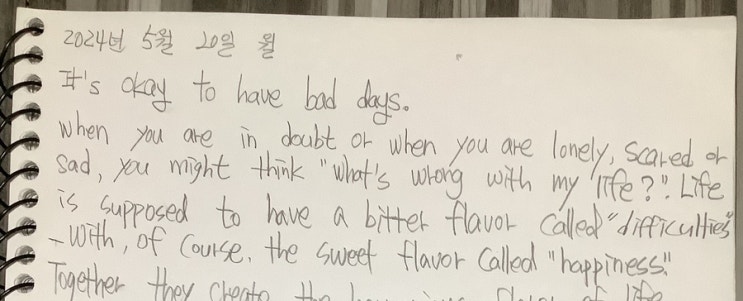 2024년 5월 20일 월
It's okay to have bad days.
When you are in doubt or when you are lonely, scared or
sad, you might think "what's wrong with my life?". Life
is supposed to have a bitter flavor called "difficulties"
- with, of course, the sweet flavor called "happiness."
Together they create the of life